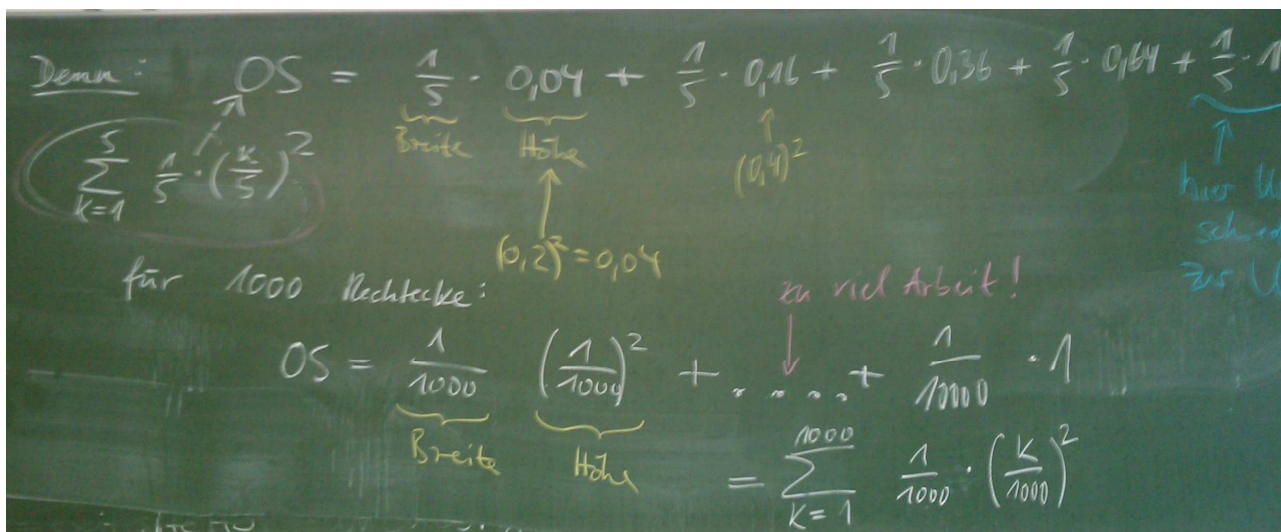 Denn: OS = 1/5 · 0,04 + 1/5 · 0,16 + 1/5 · 0,36 + 1/5 · 0,64 + 1/5 · 1
Breite Höhe
(0,4)²
∑_{k=1}^{5} 1/5 · (k/5)²
(0,2)² = 0,04
hier
zur U
für 1000 Rechtecke:
zu viel Arbeit!
OS = 1/1000 (1/1000)² + .... + 1/10000 · 1
Breite Höhe
= ∑_{k=1}^{1000} 1/1000 · (k/1000)²